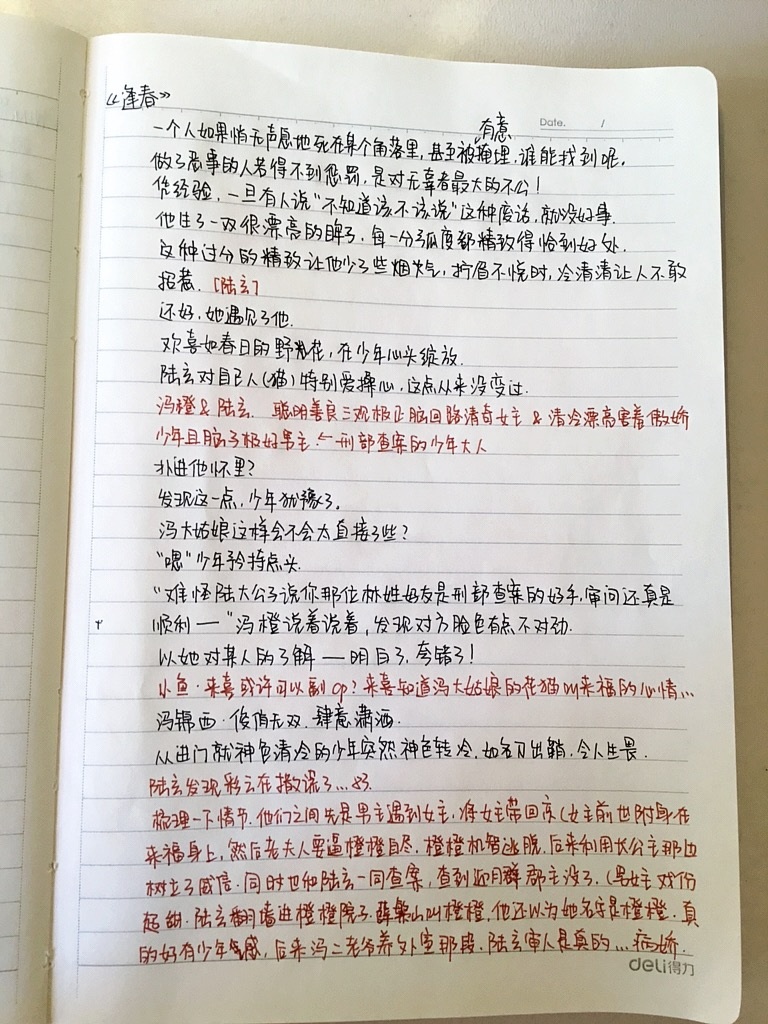 《逢春》
有意
Date. /
一个人如果悄无声息地死在某个角落里，甚至被掩埋，谁能找到呢。
做了恶事的人若得不到惩罚，是对无辜者最大的不公！
作经验，一旦有人说“不知道该不该说”这种废话，就没好事.
他生了一双很漂亮的眸子，每一分弧度都精致得恰到好处.
这种过分的精致让他少了些烟火气，拧眉不悦时，冷清清让人不敢
招惹.「陆玄」
还好，她遇见了他.
欢喜如春日的野花，在少年心头绽放.
陆玄对自己人(猫)特别爱操心，这点从来没变过.
冯橙＆陆玄. 聪明善良三观极正脑回路清奇女主 ＆ 清冷漂亮害羞傲娇
少年且脑子极好男主 ← 刑部查案的少年大人
扑进他怀里？
发现这一点，少年犹豫了。
冯大姑娘这样会不会太直接了些？
“嗯”少年矜持点头.
“难怪陆大公子说你那位林姓好友是刑部查案的好手，审问还真是
顺利——”冯橙说着说着，发现对方脸色有点不对劲.
以她对某人的了解——明白了，夸错了！
小鱼·来喜或许可以副cp？来喜知道冯大姑娘的花猫叫来福的心情…
冯锦西·俊俏无双.肆意潇洒.
从进门就神色清冷的少年突然神色转冷，如名刀出鞘，令人生畏.
陆玄发现彩云在撒谎了…
梳理一下情节.他们之间先是男主遇到女主，将女主带回京(女主前世附身在
来福身上，然后老夫人要逼橙橙自尽，橙橙机智逃脱，后来利用长公主那边
树立了威信.同时也和陆玄一同查案，查到迎月郡主没了.(男女主戏份
超甜.陆玄翻墙进橙橙院子.薛繁山叫橙橙，他还以为她名字是橙橙.真
的好有少年气感，后来冯二老爷养外室那段.陆玄审人是真的…病娇.
deli得力